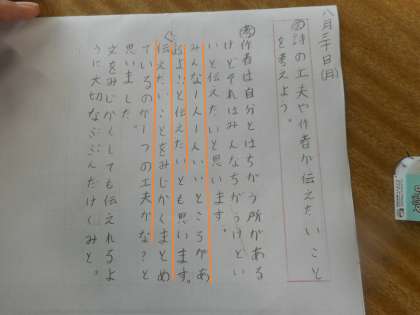 八月三十日(月)
詩の工夫や作者が伝えたいこと
を考えよう。
作者は自分とはちがう所がある
けどそれはみんなちがうけどい
いと伝えたいと思います。
みんな一人一人いいところがあ
るよ、と伝えたいとも思います。
伝えたいことをみじかくまとめ
ているのが一つの工夫かな?と
思いました。
文をみじかくしても伝えれるよ
うに大切なぶぶんだけくみと。